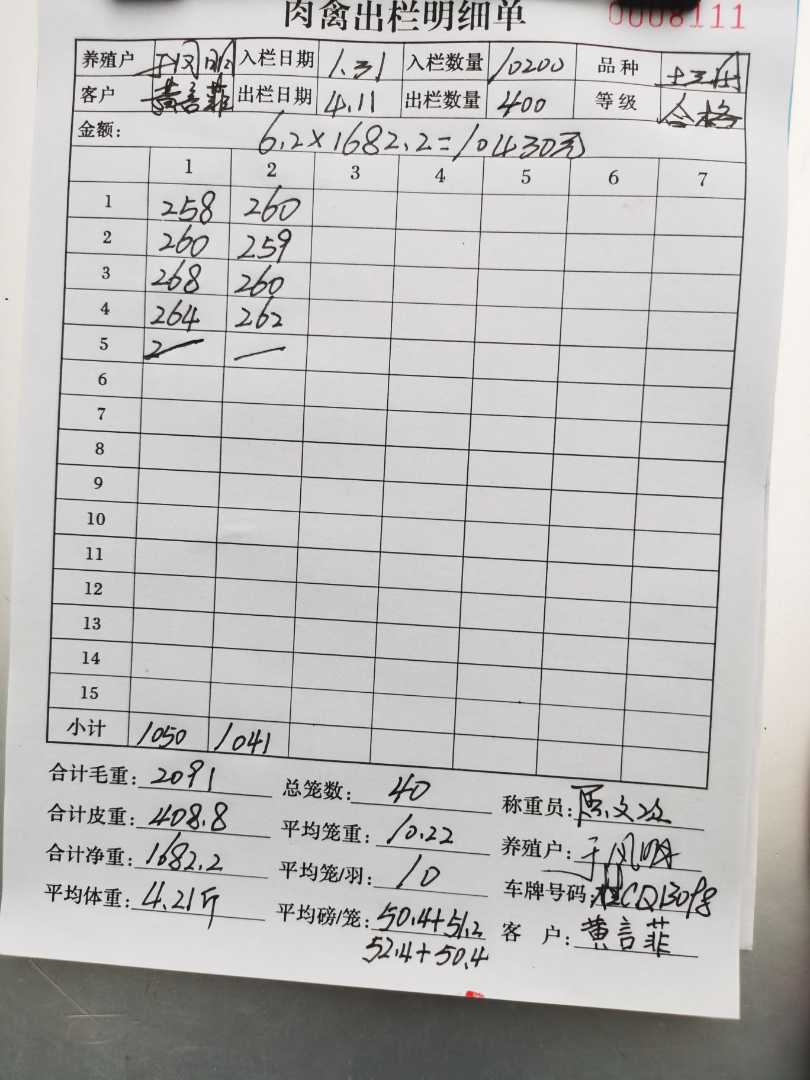 肉禽出栏明细单 0008111
养殖户 于凤明 入栏日期 1.31 入栏数量 10200 品种
客户 黄言菲 出栏日期 4.11 出栏数量 400 等级 合格
金额: 6.2×1682.2=10430元
1 2 3 4 5 6 7
1 258 260
2 260 259
3 268 260
4 264 262
5
6
7
8
9
10
11
12
13
14
15
小计 1050 1041
合计毛重: 2091 总笼数: 40 称重员:
合计皮重: 408.8 平均笼重: 10.22 养殖户: 于凤明
合计净重: 1682.2 平均笼/羽: 10 车牌号码: 桂CQ13098
平均体重: 4.21斤 平均磅/笼: 50.4+51.2 客 户: 黄言菲
52.4+50.4